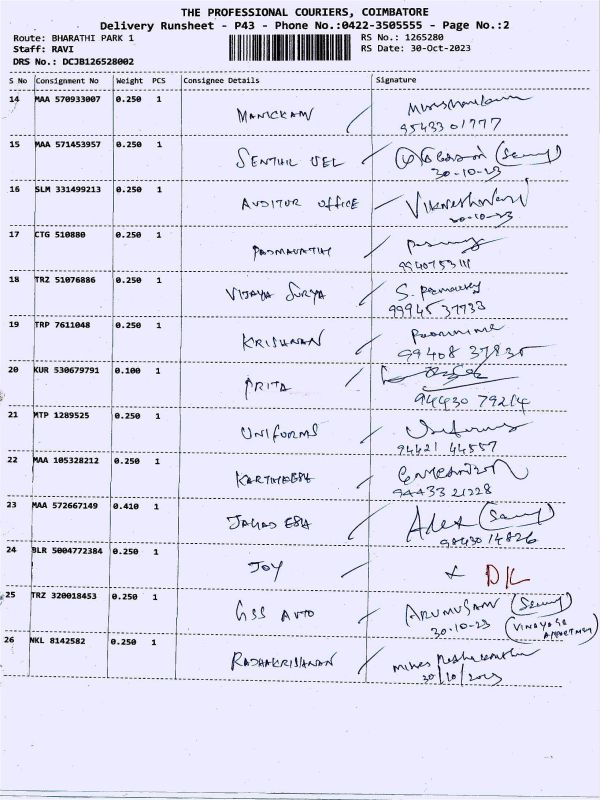 THE PROFESSIONAL COURIERS, COIMBATORE
Delivery Runsheet - P43 - Phone No.:0422-3505555 - Page No.:2
Route: BHARATHI PARK 1 RS No.: 1265280
Staff: RAVI RS Date: 30-Oct-2023
DRS No.: DCJB126528002
S No Consignment No Weight PCS Consignee Details Signature
14 MAA 570933007 0.250 1
MANICKAM /
95433 01777
15 MAA 571453957 0.250 1
SENTHIL VEL / (Security)
30-10-23
16 SLM 331499213 0.250 1
AUDITOR OFFICE / Vikneshwari
30-10-23
17 CTG 510880 0.250 1
PADMAVATHY /
18 TRZ 51076886 0.250 1
VIJAYA SURYA / S.
99945 37733
19 TRP 7611048 0.250 1
KRISHNAN / Poornima
99408 37835
20 KUR 530679791 0.100 1
PRITA /
94430 79214
21 MTP 1289525 0.250 1
UNIFORMS / Uniforms
94421 44557
22 MAA 105328212 0.250 1
KARTHIKESH /
94433 21228
23 MAA 572667149 0.410 1
/ Alex
98430 14826
24 BLR 5004772384 0.250 1
JOY / D/L
25 TRZ 320018453 0.250 1
GSS AUTO / ARUMUGAM
30-10-23 (VINAYAGA
APARTMENT)
26 NKL 8142582 0.250 1
RADHAKRISHNAN /
30/10/2023